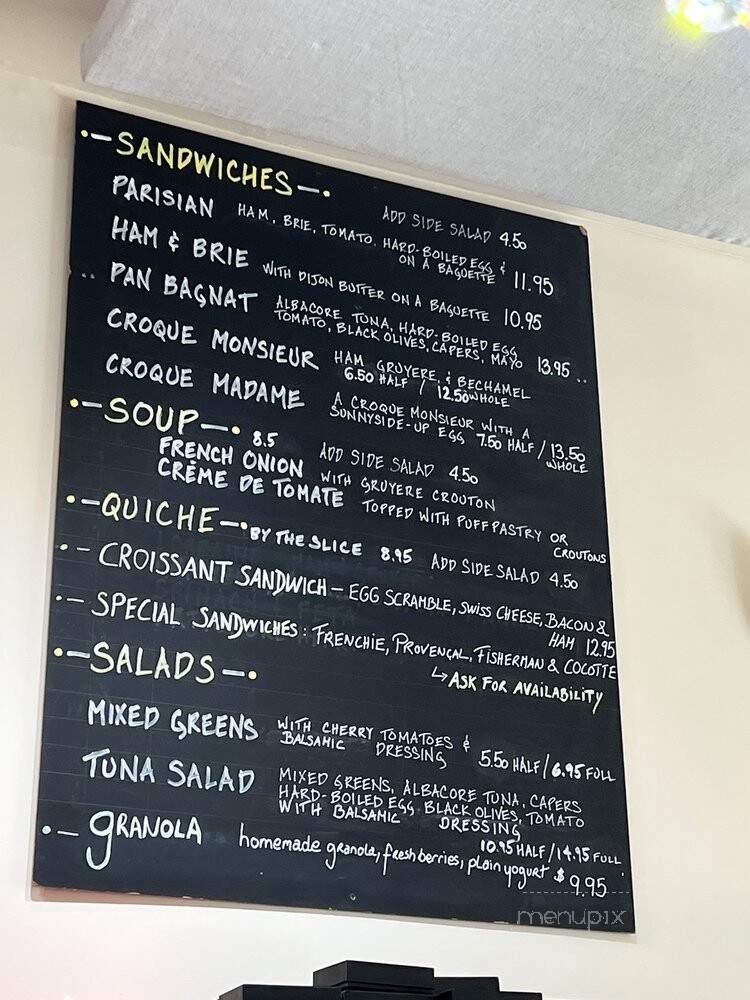 SANDWICHES
ADD SIDE SALAD 4.50
PARISIAN HAM, BRIE, TOMATO, HARD-BOILED EGG &
ON A BAGUETTE 11.95
HAM & BRIE WITH DIJON BUTTER ON A BAGUETTE 10.95
PAN BAGNAT ALBACORE TUNA, HARD-BOILED EGG
TOMATO, BLACK OLIVES, CAPERS, MAYO 13.95
CROQUE MONSIEUR HAM GRUYERE, & BECHAMEL
6.50 HALF / 12.50 WHOLE
CROQUE MADAME A CROQUE MONSIEUR WITH A
SUNNYSIDE-UP EGG 7.50 HALF / 13.50
WHOLE
SOUP 8.5 ADD SIDE SALAD 4.50
FRENCH ONION WITH GRUYERE CROUTON
CRÈME DE TOMATE TOPPED WITH PUFF PASTRY OR
CROUTONS
QUICHE BY THE SLICE 8.95 ADD SIDE SALAD 4.50
CROISSANT SANDWICH - EGG SCRAMBLE, SWISS CHEESE, BACON &
HAM 12.95
SPECIAL SANDWICHES: FRENCHIE, PROVENÇAL, FISHERMAN & COCOTTE
↳ ASK FOR AVAILABILITY
SALADS
MIXED GREENS WITH CHERRY TOMATOES &
BALSAMIC DRESSING 5.50 HALF / 6.95 FULL
TUNA SALAD MIXED GREENS, ALBACORE TUNA, CAPERS
HARD-BOILED EGG BLACK OLIVES, TOMATO
WITH BALSAMIC DRESSING
10.95 HALF / 14.95 FULL
GRANOLA homemade granola, fresh berries, plain yogurt $9.95
menupix